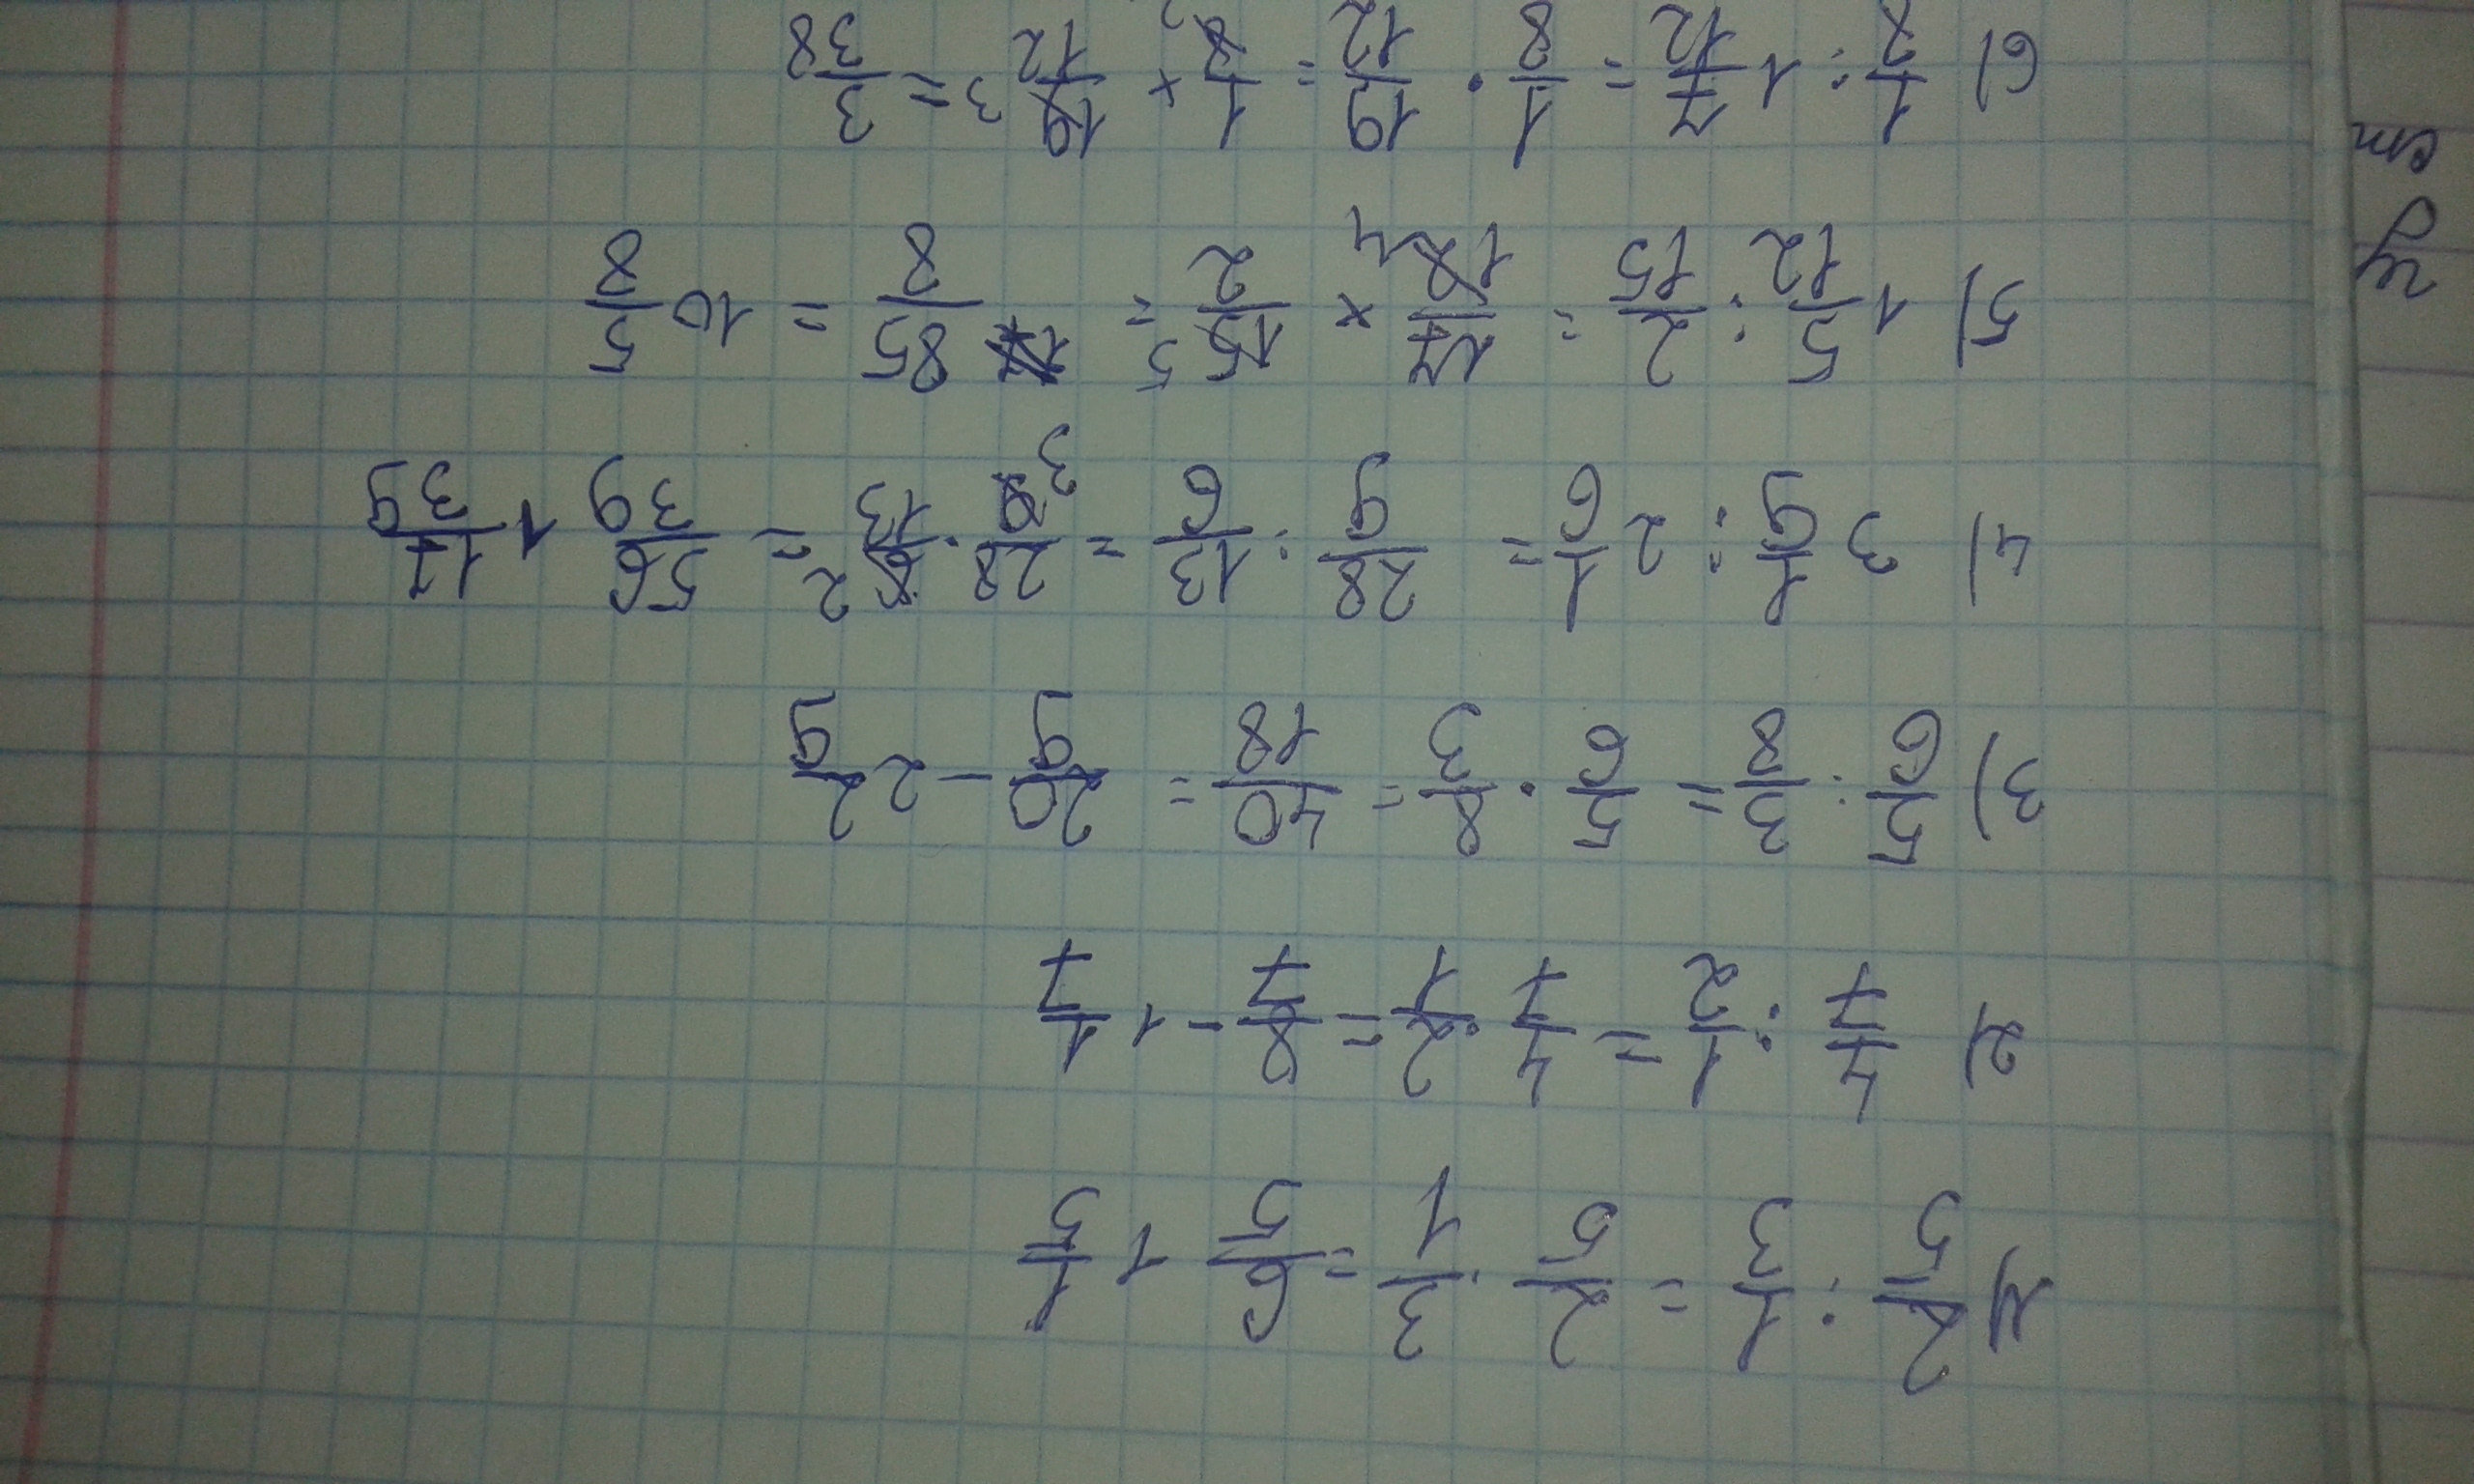 1) 2/5 : 1/3 = 2/5 · 3/1 = 6/5 1 1/5
2) 4/7 : 1/2 = 4/7 · 2/1 = 8/7 - 1 1/7
3) 5/6 : 3/8 = 5/6 · 8/3 = 40/18 = 20/9 - 2 2/9
4) 3 1/9 : 2 1/6 = 28/9 : 13/6 = 28/9 3 · 6/13 2 = 56/39 1 17/39
5) 1 5/12 : 2/15 = 17/12 4 × 15/2 5 = 85/8 = 10 5/8
6) 1/8 : 1 7/12 = 1/8 · 19/12 = 1/8 2 × 19/12 3 = 3/38